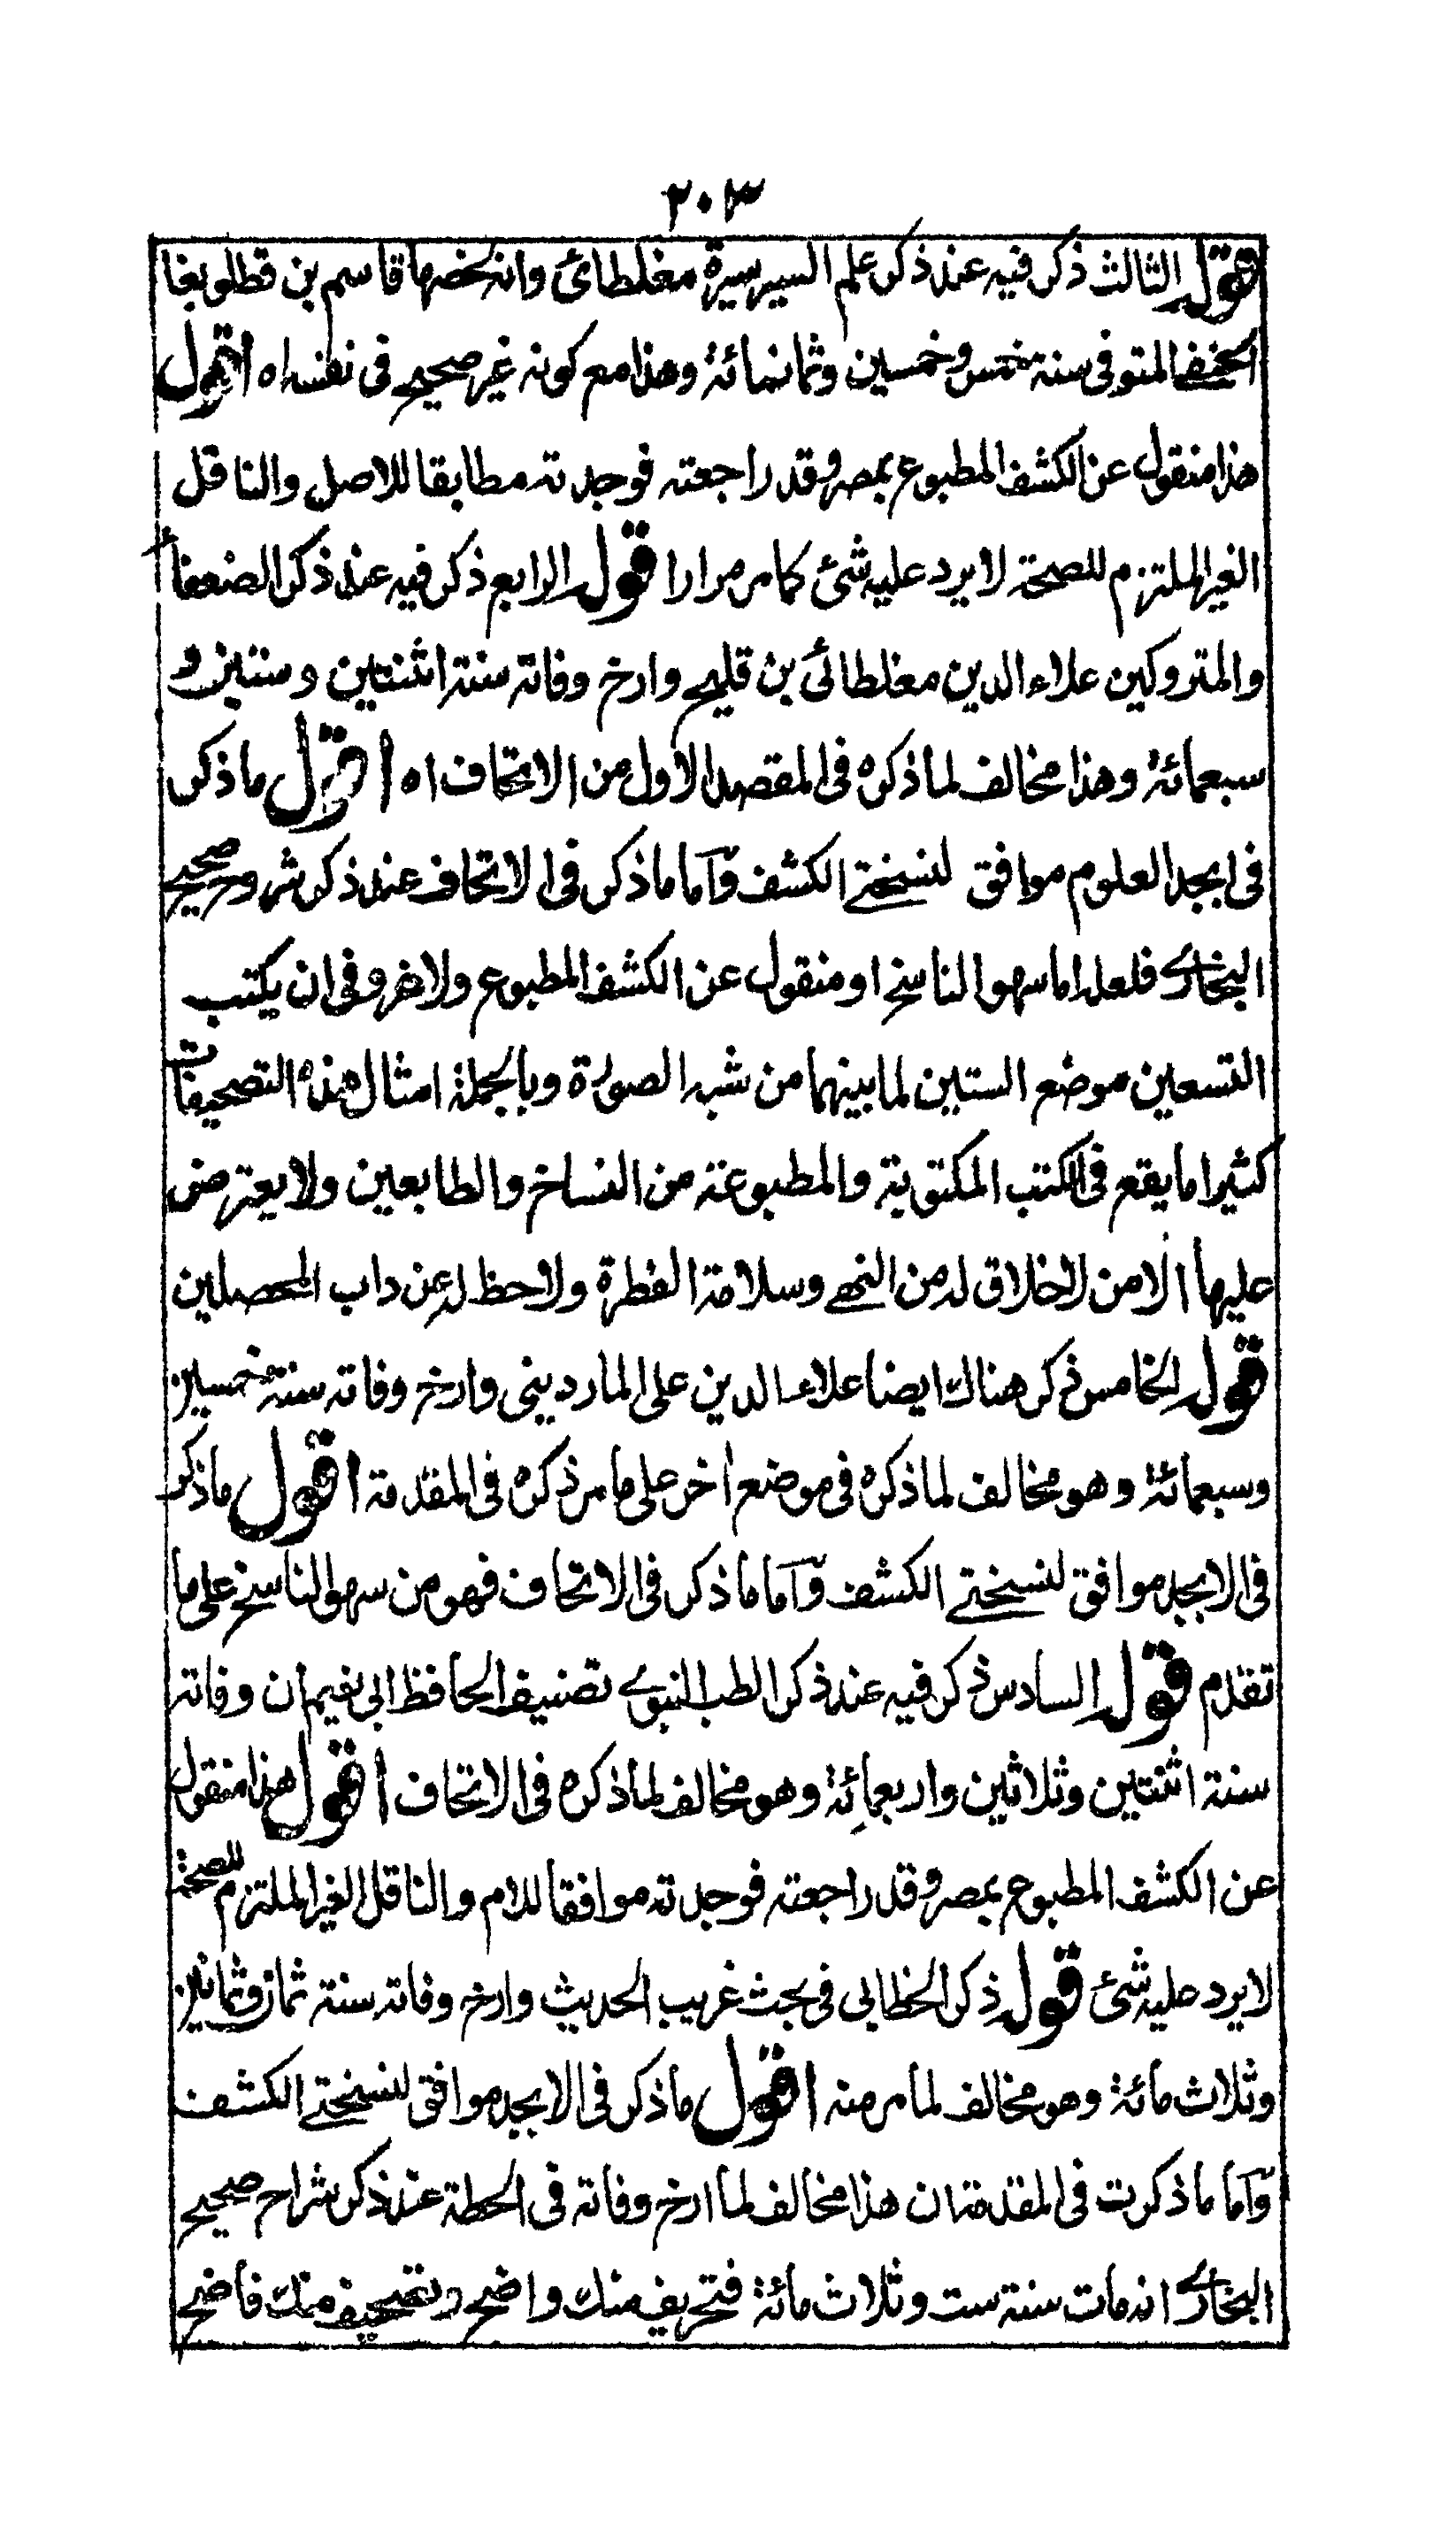 ٢٠٣
قوله الثالث ذكر فيه عند ذكر علم السير سيرة مغلطائ وانه لخصها قاسم بن قطلوبغا
الحنفے المتوفى سنة خمس وخمسين وثمانمائة وهذا مع كونه غير صحيح فى نفسه اه اقول
هذا منقول عن الكشف المطبوع بمصر وقد راجعته فوجدته مطابقا للاصل والناقل
الغير الملتزم للصحة لا يرد عليه شئ كما مر مرارا قوله الرابع ذكر فيه عند ذكر الضعفأ
والمتروكين علاء الدين مغلطائى بن قليج وارخ وفاته سنة اثنتين وستين و
سبعمائة وهذا مخالف لما ذكره فى المقصد الاول من الاتحاف اه اقول ما ذكر
فى ابجد العلوم موافق لنسختے الكشف وآما ما ذكر فى الاتحاف عند ذكر شروح صحيح
البخارے فلعله اما سهو الناسخ او منقول عن الكشف المطبوع ولا ضرو فى ان يكتب
التسعين موضع الستين لما بينهما من شبه الصورة وبالجملة امثال هذه التصحيفات
كثيرا ما يقع فى الكتب المكتوبة والمطبوعة من النساخ والطابعين ولا يعترض
عليها الا من لا خلاق له من النهے وسلامة الفطرة ولا حظ له عن داب المحصلين
قوله الخامس ذكر هناك ايضا علاء الدين على الماردينى وارخ وفاته سنة خمسين
وسبعمائة وهو مخالف لما ذكره فى موضع اٰخر على ما مر ذكره فى المقدمة اقول ما ذكر
فى الابجد موافق لنسختے الكشف وآما ما ذكر فى الاتحاف فهو من سهو الناسخ على ما
تقدم قوله السادس ذكر فيه عند ذكر الطب النبوے تصنيف الحافظ ابى نعيم ان وفاته
سنة اثنتين وثلاثين واربعمائة وهو مخالف لما ذكره فى الاتحاف اقول هذا منقول
عن الكشف المطبوع بمصر وقد راجعته فوجدته موافقا للام والناقل الغير الملتزم للصحة
لا يرد عليه شئ قوله ذكر الخطابى فى بحث غريب الحديث وارخ وفاته سنة ثمان وثمانين
وثلاث مائة وهو مخالف لما مر منه اقول ما ذكر فى الابجد موافق لنسختے الكشف
وآما ما ذكرت فى المقدمة ان هذا مخالف لما ارخ وفاته فى الحطة عند ذكر شراح صحيح
البخارے انه مات سنة ست وثلاث مائة فتحريف منك واضح وتصحيف منك فاضح